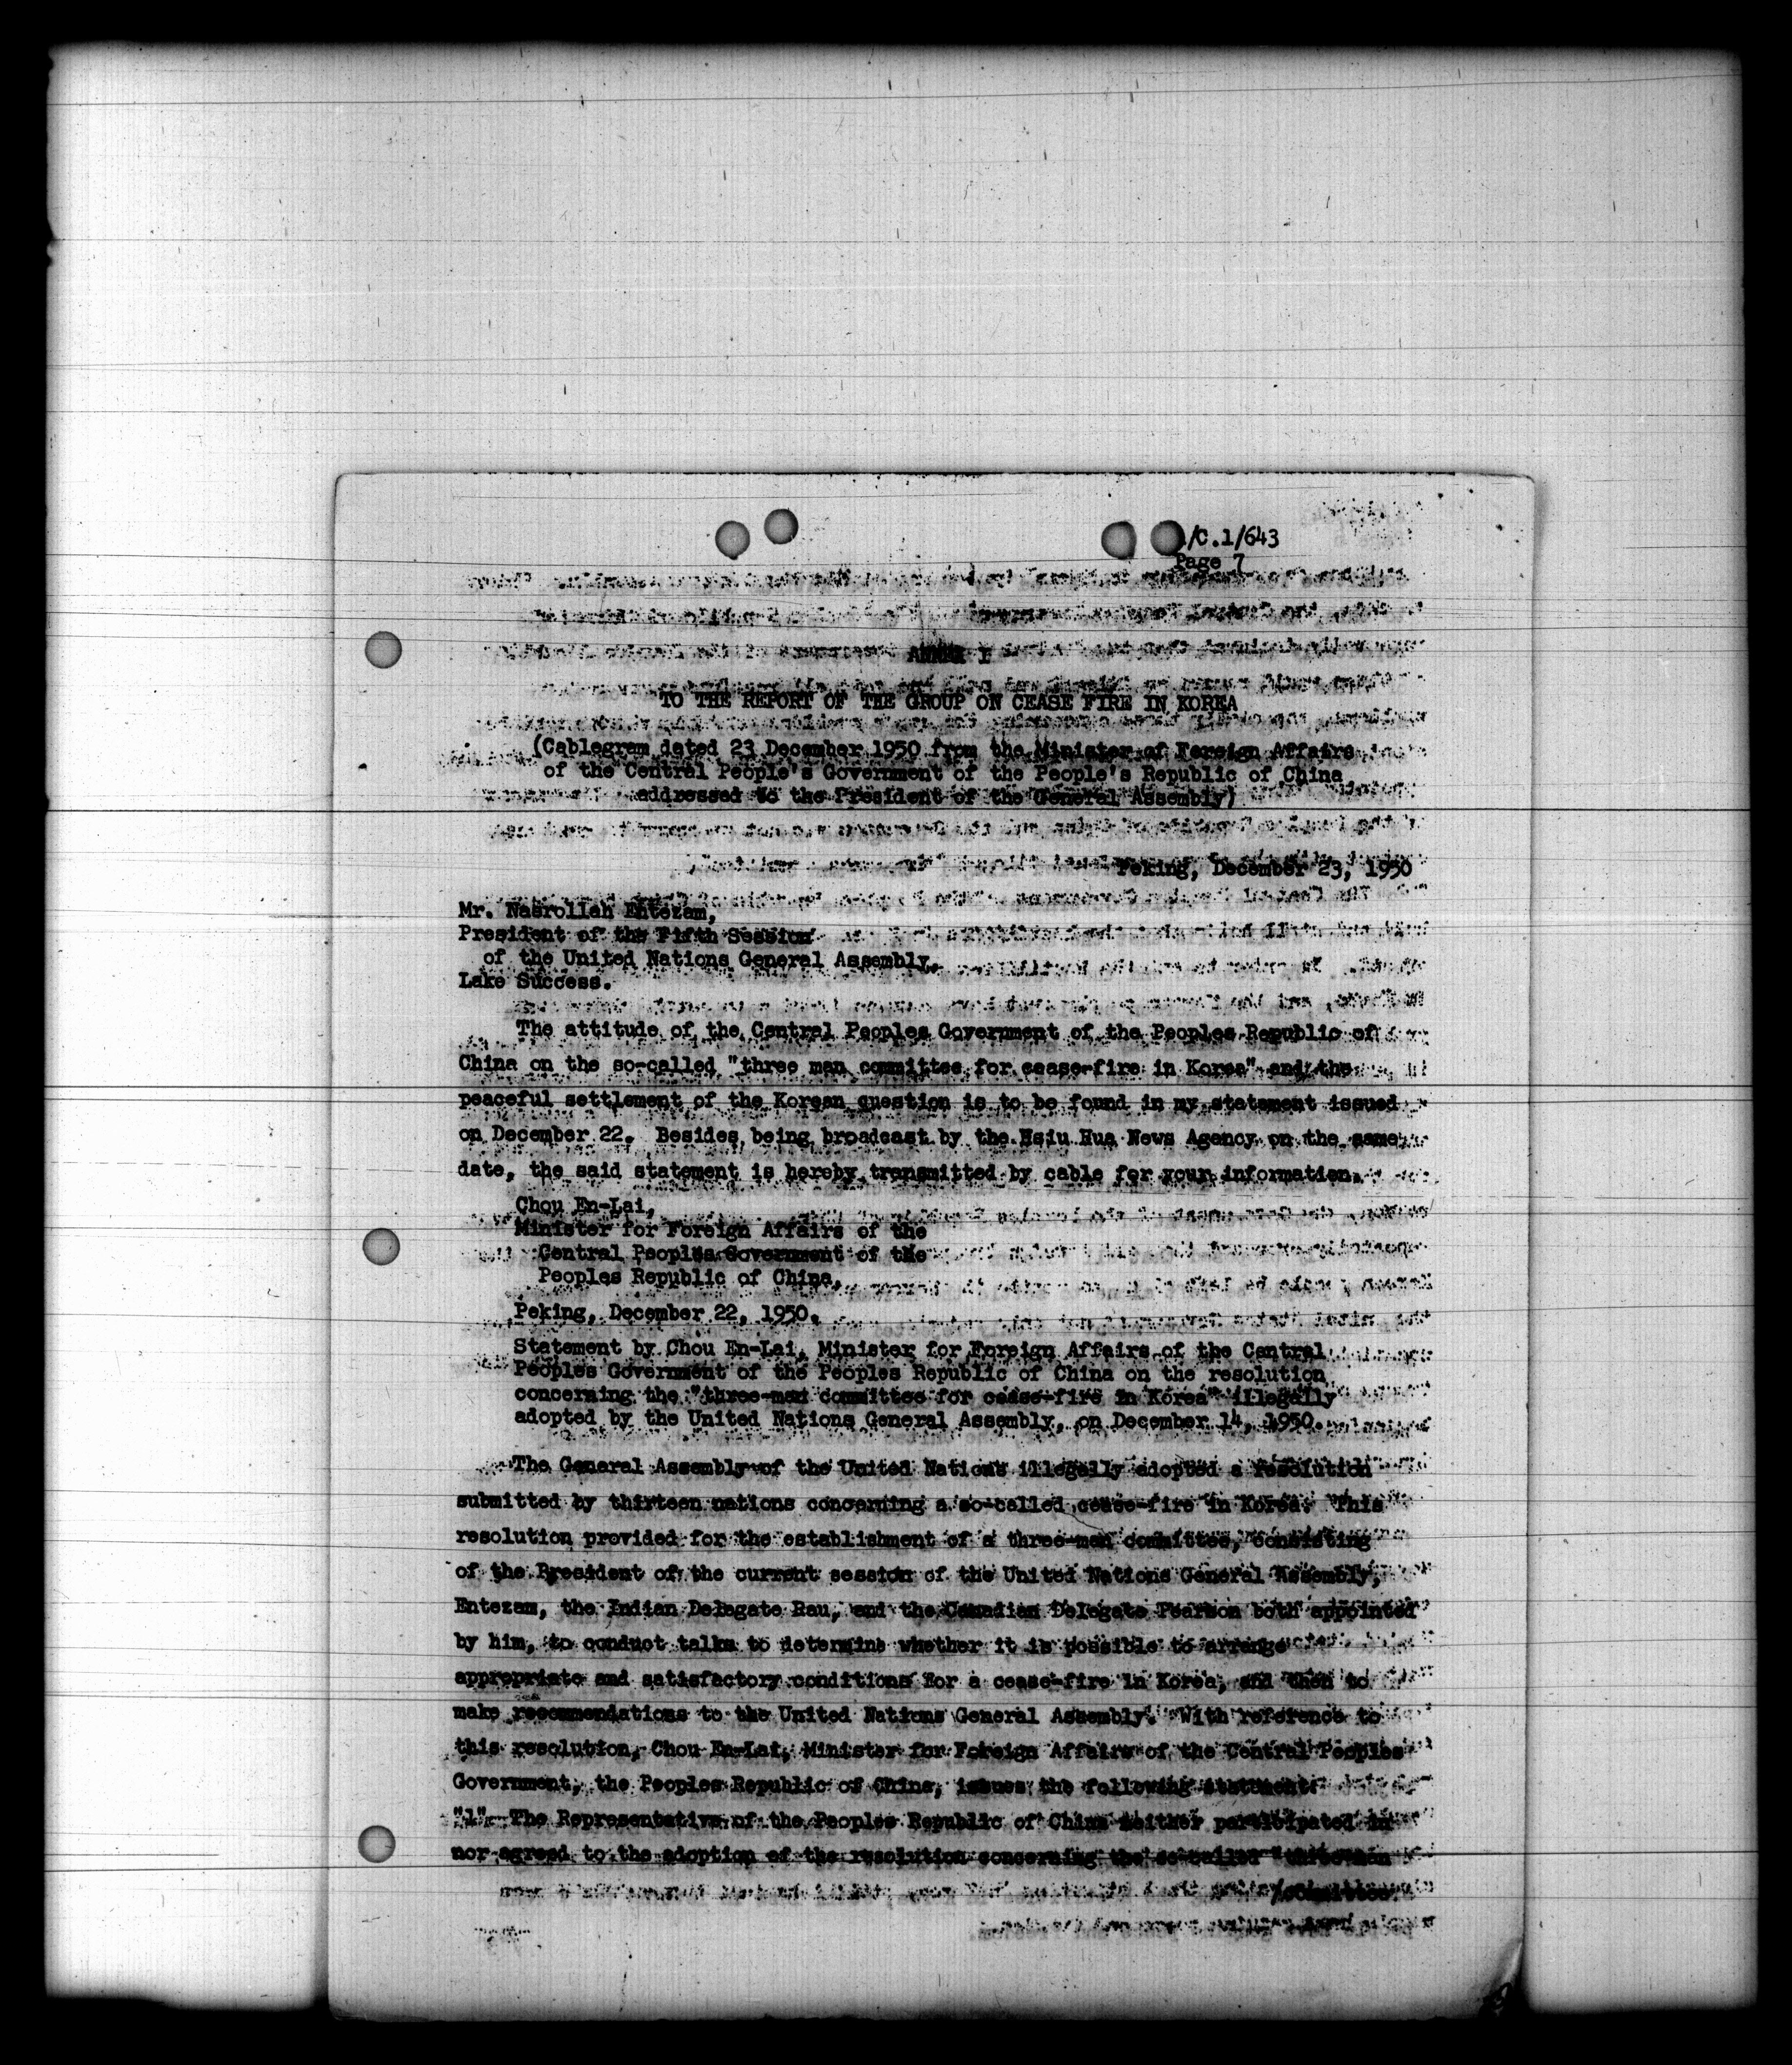 /C.1/643
Page 7
ANNEX I
TO THE REPORT OF THE GROUP ON CEASE FIRE IN KOREA
(Cablegram dated 23 December 1950 from the Minister of Foreign Affairs
of the Central People's Government of the People's Republic of China
addressed to the President of the General Assembly)
Peking, December 23, 1950
Mr. Nasrollah Entezam,
President of the Fifth Session
of the United Nations General Assembly,
Lake Success.
The attitude of the Central Peoples Government of the Peoples Republic of
China on the so-called "three man committee for cease-fire in Korea" and the
peaceful settlement of the Korean question is to be found in my statement issued
on December 22. Besides being broadcast by the Hsiu Hua News Agency on the same
date, the said statement is hereby transmitted by cable for your information.
Chou En-Lai,
Minister for Foreign Affairs of the
Central Peoples Government of the
Peoples Republic of China,
Peking, December 22, 1950.
Statement by Chou En-Lai, Minister for Foreign Affairs of the Central
Peoples Government of the Peoples Republic of China on the resolution
concerning the "three-man committee for cease-fire in Korea" illegally
adopted by the United Nations General Assembly, on December 14, 1950.
The General Assembly of the United Nations illegally adopted a resolution
submitted by thirteen nations concerning a so-called cease-fire in Korea. This
resolution provided for the establishment of a three-man committee, consisting
of the President of the current session of the United Nations General Assembly,
Entezam, the Indian Delegate Rau, and the Canadian Delegate Pearson both appointed
by him, to conduct talks to determine whether it is possible to arrange
appropriate and satisfactory conditions for a cease-fire in Korea, and then to
make recommendations to the United Nations General Assembly. With reference to
this resolution, Chou En-Lai, Minister for Foreign Affairs of the Central Peoples
Government, the Peoples Republic of China, issues the following statement:
"1" The Representative of the Peoples Republic of China neither participated in
nor agreed to the adoption of the resolution concerning the so-called "three-man
/committee